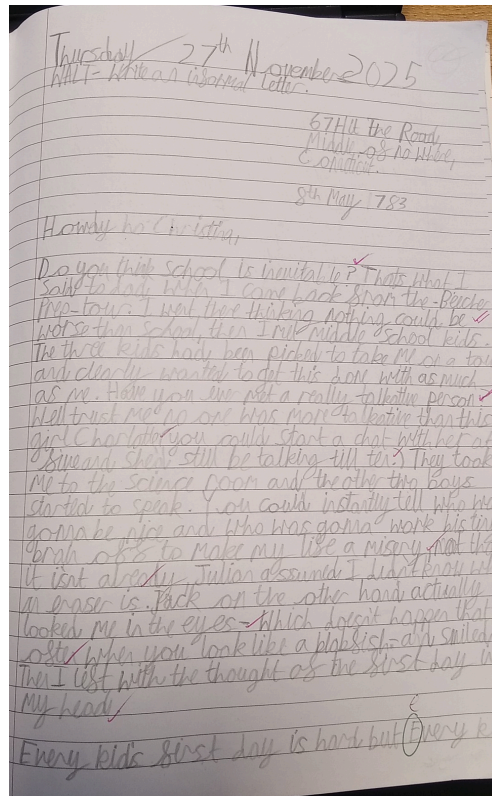 Thursday 27th November 2025
WALT- Write an informal letter.
67Hit the Road,
Middle of nowhere,
8th May 1783
Howdy ho Christin,
Do you think school is inevital ? Thats what I
said to dad when I come back from the Beecher
Prep-tour. I went there thinking nothing could be
worse than school, then I met middle school kids.
The three kids had been picked to take me on a tou
and clearly wanted to get this done with as much
as me. Have you ever met a really talkative person?
Well trust me no one was more talkative than this
girl Charlotte you could start a chat with her at
five and still be talking till ten.) They took
me to the science room and the other two boys
started to speak. You could instantly tell who wa
gonna be nice and who was gonna work his tin
brain off to make my life a misery not th
it isnt already. Julian assumed I didn't know wh
an eraser is. Jack on the other hand actually
looked me in the eyes- Which doesn't happen that
often when you look like a blobfish- and smiled
Then I left with the thought of the first day in
my head.
E
Every kids first day is hard but Every k